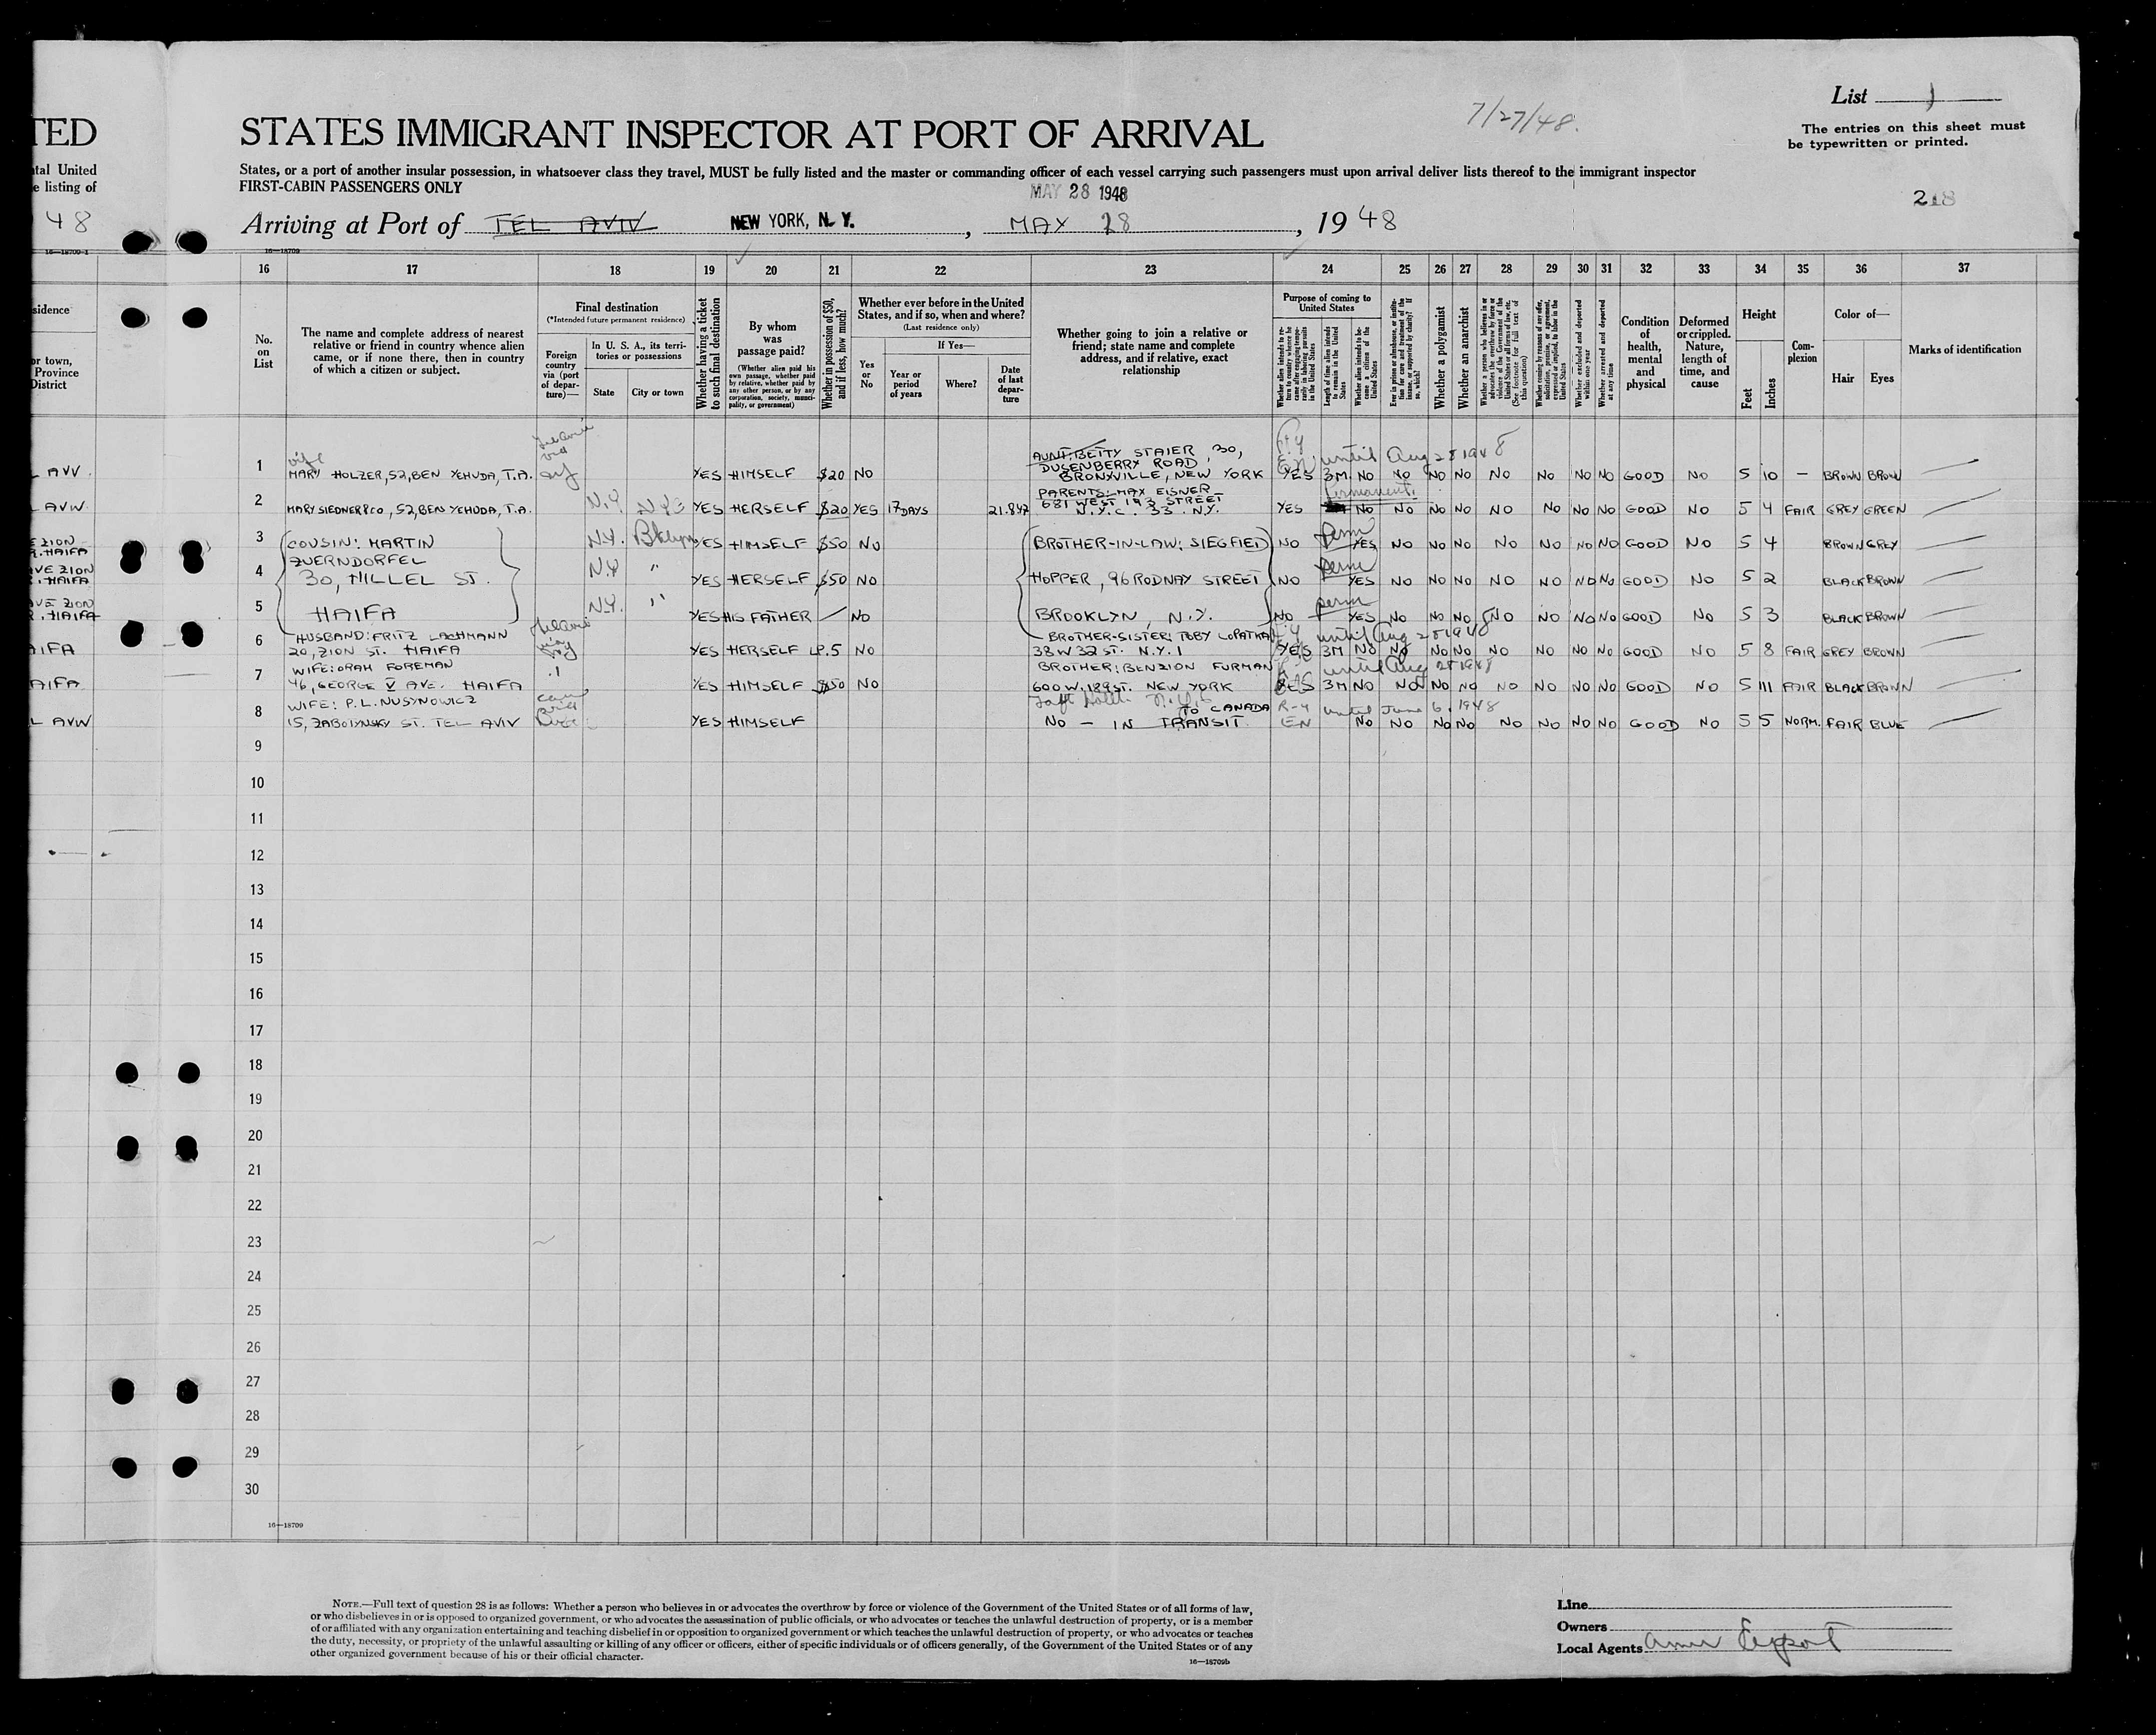 List 1
7/27/48.
The entries on this sheet must
be typewritten or printed.
TED
STATES IMMIGRANT INSPECTOR AT PORT OF ARRIVAL
tal United
e listing of
States, or a port of another insular possession, in whatsoever class they travel, MUST be fully listed and the master or commanding officer of each vessel carrying such passengers must upon arrival deliver lists thereof to the immigrant inspector
FIRST-CABIN PASSENGERS ONLY
MAY 28 1948
218
48
Arriving at Port of TEL AVIV NEW YORK, N. Y. , MAY 28 , 19 48
16—18709-1
16—18709
16 17 18 19 20 21 22 23 24 25 26 27 28 29 30 31 32 33 34 35 36 37
sidence
or town,
Province
District
No.
on
List
The name and complete address of nearest
relative or friend in country whence alien
came, or if none there, then in country
of which a citizen or subject.
Final destination
(*Intended future permanent residence)
Foreign
country
via (port
of depar-
ture)—
In U. S. A., its terri-
tories or possessions
State
City or town
Whether having a ticket
to such final destination
By whom
was
passage paid?
(Whether alien paid his
own passage, whether paid
by relative, whether paid by
any other person, or by any
corporation, society, munici-
pality, or government)
Whether in possession of $50,
and if less, how much?
Whether ever before in the United
States, and if so, when and where?
(Last residence only)
Yes
or
No
If Yes—
Year or
period
of years
Where?
Date
of last
depar-
ture
Whether going to join a relative or
friend; state name and complete
address, and if relative, exact
relationship
Purpose of coming to
United States
Whether alien intends to re-
turn to country whence he
came after engaging tempo-
rarily in laboring pursuits
in the United States
Length of time alien intends
to remain in the United
States
Whether alien intends to be-
come a citizen of the
United States
Ever in prison or almshouse, or institu-
tion for care and treatment of the
insane, or supported by charity? If
so, which?
Whether a polygamist
Whether an anarchist
Whether a person who believes in or
advocates the overthrow by force or
violence of the Government of the
United States or all forms of law, etc.
(See footnote for full text of
this question)
Whether coming by reasons of any offer,
solicitation, promise, or agreement,
expressed or implied, to labor in the
United States
Whether excluded and deported
within one year
Whether arrested and deported
at any time
Condition
of
health,
mental
and
physical
Deformed
or crippled.
Nature,
length of
time, and
cause
Height
Feet
Inches
Com-
plexion
Color of—
Hair
Eyes
Marks of identification
L AVV. 1 wife
MARY HOLZER, 52, BEN YEHUDA, T.A. YES HIMSELF $20 NO
AUNT: BETTY STAIER, 30,
DUSENBERRY ROAD,
BRONXVILLE, NEW YORK
until Aug 28 1948
YES 3M. NO NO NO NO NO NO NO NO GOOD NO 5 10 — BROWN BROWN
L AVIV. 2 MARY SIEDNER & CO, 52, BEN YEHUDA, T.A. N.Y. NYC YES HERSELF $20 YES 17 DAYS 21.8.47
PARENTS: MAX EISNER
681 WEST 193 STREET
N.Y.C. 33. N.Y.
Permanent.
YES NO NO NO NO NO NO NO NO GOOD NO 5 4 FAIR GREY GREEN
E ZION
R. HAIFA
3 COUSIN: MARTIN N.Y. Bklyn YES HIMSELF $50 NO BROTHER-IN-LAW: SIEGFIED NO perm YES NO NO NO NO NO NO NO GOOD NO 5 4 BROWN GREY
VE ZION
R. HAIFA
ZUERNDORFEL
4 30, HILLEL ST. N.Y. " YES HERSELF $50 NO HOPPER, 96 RODNAY STREET NO perm YES NO NO NO NO NO NO NO GOOD NO 5 2 BLACK BROWN
VE ZION
R. HAIFA
5 HAIFA N.Y. " YES HIS FATHER / NO BROOKLYN, N.Y. NO perm YES NO NO NO NO NO NO NO GOOD NO 5 3 BLACK BROWN
AIFA 6 HUSBAND: FRITZ LACHMANN
20, ZION ST. HAIFA YES HERSELF LP.5 NO
BROTHER-SISTER: TOBY LOPATKA
38 W 32 ST. N.Y. 1
until Aug 28 1948
YES 3M NO NO NO NO NO NO NO NO GOOD NO 5 8 FAIR GREY BROWN
HAIFA 7 WIFE: ORAH FOREMAN
46, GEORGE V AVE. HAIFA YES HIMSELF $50 NO
BROTHER: BENZION FURMAN
600 W. 189 ST. NEW YORK
until Aug 28 1948
YES 3M NO NO NO NO NO NO NO NO GOOD NO 5 11 FAIR BLACK BROWN
L AVIV 8 WIFE: P.L. NUSYNOWICZ
15, ZABOTYNSKY ST. TEL AVIV YES HIMSELF
Taft Hotel N.Y.C.
TO CANADA
NO — IN TRANSIT
R-4 until June 6, 1948
EN NO NO NO NO NO NO NO NO GOOD NO 5 5 NORM. FAIR BLUE
9
10
11
12
13
14
15
16
17
18
19
20
21
22
23
24
25
26
27
28
29
30
16—18709
NOTE.—Full text of question 28 is as follows: Whether a person who believes in or advocates the overthrow by force or violence of the Government of the United States or of all forms of law,
or who disbelieves in or is opposed to organized government, or who advocates the assassination of public officials, or who advocates or teaches the unlawful destruction of property, or is a member
of or affiliated with any organization entertaining and teaching disbelief in or opposition to organized government or which teaches the unlawful destruction of property, or who advocates or teaches
the duty, necessity, or propriety of the unlawful assaulting or killing of any officer or officers, either of specific individuals or of officers generally, of the Government of the United States or of any
other organized government because of his or their official character.
16—18709b
Line
Owners
Local Agents